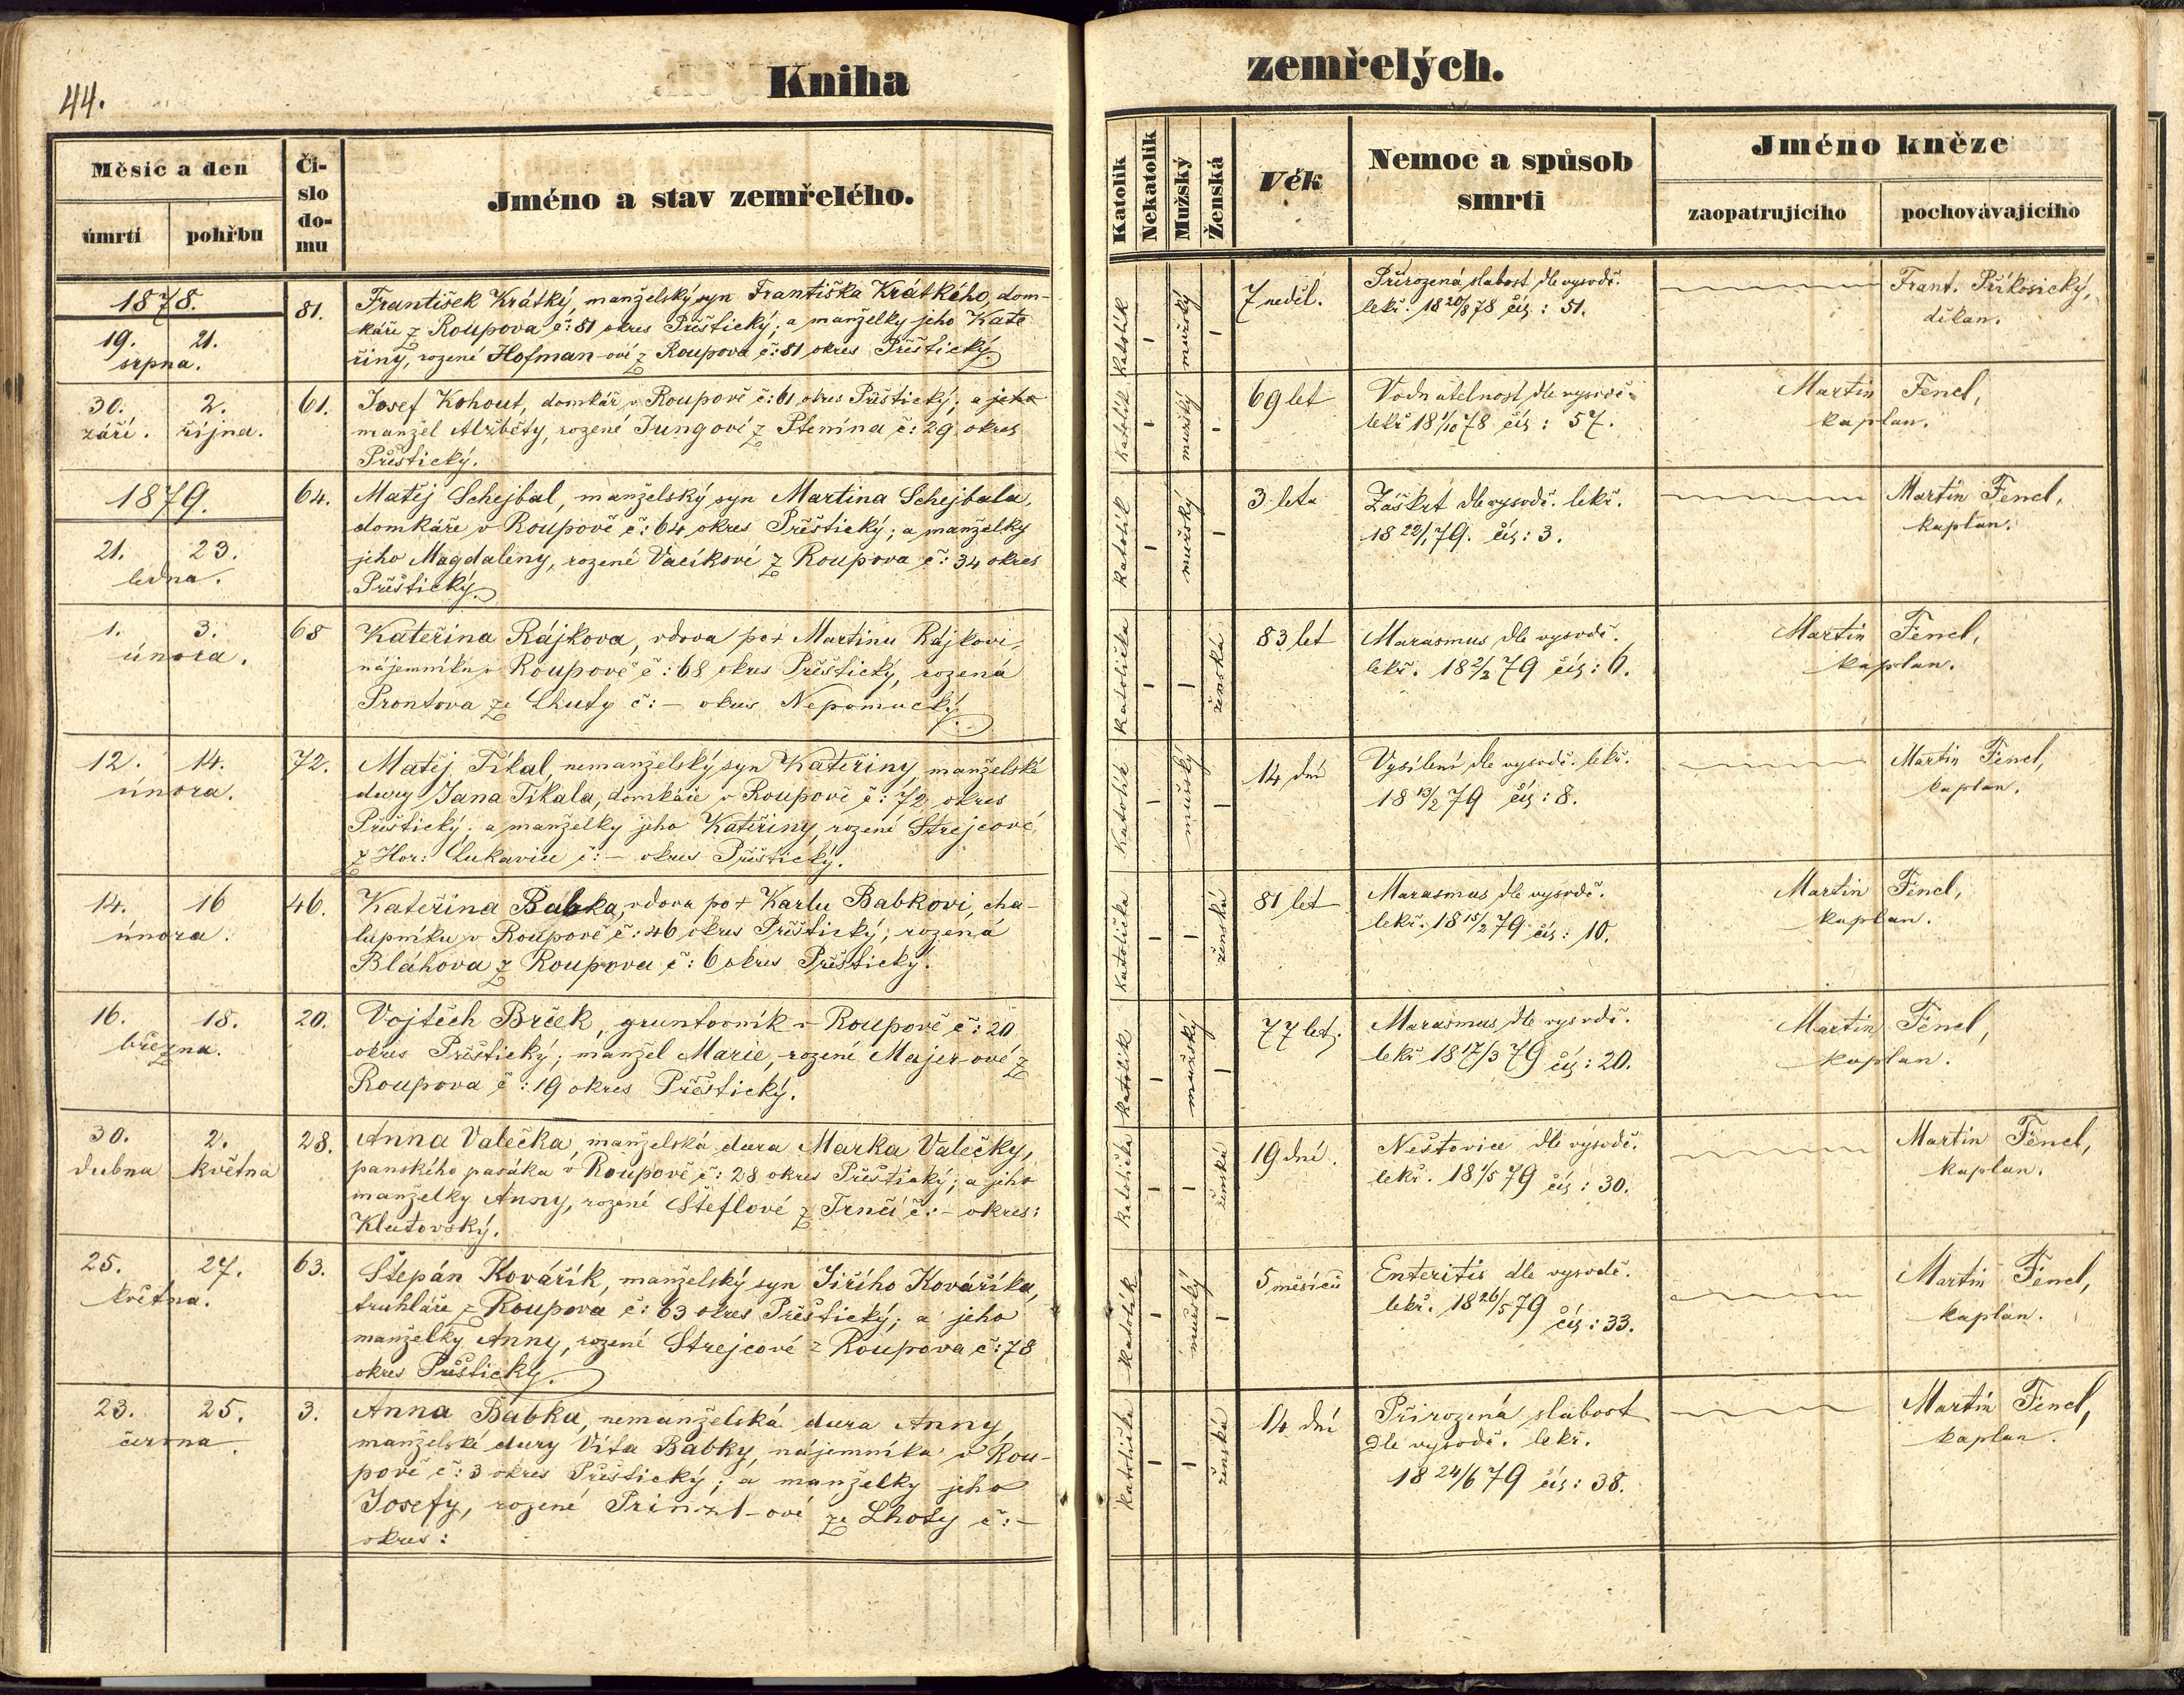 44.
Kniha
zemřelých.
Měsíc a den
úmrtí
pohřbu
Čí-
slo
do-
mu
Jméno a stav zemřelého.
Katolík
Nekatolík
Mužský
Ženská
Věk
Nemoc a spůsob
smrti
Jméno kněze
zaopatrujícího
pochovávajícího
1878.
19. 21.
srpna.
81.
František Krátký, manželský syn Františka Krátkého, dom-
káře z Roupova č: 81 okres Přeštický; a manželky jeho Kate
řiny, rozené Hofman-ové z Roupova č: 81 okres Přeštický
katolík
–
mužský
–
7 neděl.
Přirozená slabost dle vysvdč.
lekř. 18 20/8 78 čís: 51.
Frant. Příkosický,
děkan.
30. 2.
září. října.
61.
Josef Kohout, domkář v Roupově č: 61 okres Přeštický; a jeho
manžel Alžběty, rozené Jungové z Ptenína č: 29. okres
Přeštický.
katolík
–
mužský
–
69 let
Vodnatelnost dle vysvdč.
lekř 18 1/10 78 čís: 57.
Martin Fencl,
kaplan.
1879.
21. 23.
ledna.
64.
Matěj Schejbal, manželský syn Martina Schejbala,
domkáře v Roupově č: 64 okres Přeštický; a manželky
jeho Magdaleny, rozené Vacíkové z Roupova č: 34 okres
Přeštický.
katolík
–
mužský
–
3 leta
Záškrt dle vysvdč. lekř.
18 22/1 79. čís: 3.
Martin Fencl,
kaplan.
1. 3.
února.
68
Kateřina Rájkova, vdova po + Martinu Rájkovi,
nájemníku v Roupově č: 68 okres Přeštický, rozená
Prontova ze Lhuty č: – okres Nepomucký.
katolička
–
–
ženská
83 let
Marasmus dle vysvdč.
lekř. 18 2/2 79 čís: 6.
Martin Fencl,
kaplan.
12. 14.
února.
72.
Matěj Tikal, nemanželský syn Kateřiny, manželské
dcery Jana Tikala, domkáře v Roupově č: 72 okres
Přeštický; a manželky jeho Kateřiny, rozené Strejcové,
z Hor: Lukavice č: – okres Přeštický.
katolík
–
mužský
–
14 dní
Vysílení dle vysvdč. lekř.
18 13/2 79 čís: 8.
Martin Fencl,
kaplan.
14. 16
února.
46.
Kateřina Babka, vdova po + Karlu Babkovi, cha-
lupníku v Roupově č: 46 okres Přeštický; rozená
Bláhova z Roupova č: 6 okres Přeštický.
katolička
–
–
ženská
81 let
Marasmus dle vysvdč.
lekř. 18 15/2 79 čís: 10.
Martin Fencl,
kaplan.
16. 18.
března.
20.
Vojtěch Brček, gruntovník v Roupově č: 20
okres Přeštický; manžel Marie, rozené Majer-ové z
Roupova č: 19 okres Přeštický.
katolík
–
mužský
–
77 let.
Marasmus dle vysvdč.
lekř 18 17/3 79 čís: 20.
Martin Fencl,
kaplan.
30. 2.
dubna května
28.
Anna Valečka, manželská dcera Marka Valečky,
panského pasáka v Roupově č: 28 okres Přeštický; a jeho
manželky Anny, rozené Šteflové z Trnčí č: – okres:
Klatovský.
katolička
–
–
ženská
19 dní.
Neštovice dle vysvdč.
lekř. 18 1/5 79 čís: 30.
Martin Fencl,
kaplan.
25. 27.
května.
63.
Štěpán Kovářík, manželský syn Jiřího Kováříka,
truhláře z Roupova č: 63 okres Přeštický; a jeho
manželky Anny, rozené Strejcové z Roupova č: 78
okres Přeštický.
katolík
–
mužský
–
5 měsíců
Enteritis dle vysvdč.
lekř. 18 26/5 79
čís: 33.
Martin Fencl,
kaplan.
23. 25.
června.
3.
Anna Babka, nemanželská dcera Anny,
manželské dcery Víta Babky, nájemníka v Rou-
pově č: 3 okres Přeštický; a manželky jeho
Josefy, rozené Prinzl-ové ze Lhoty č: –
okres:
katolička
–
–
ženská
14 dní
Přirozená slabost
dle vysvdč. lekř.
18 24/6 79 čís: 38.
Martin Fencl,
kaplan.